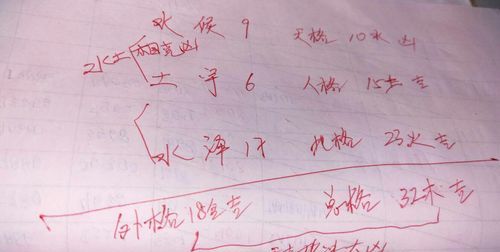 水 侯 9 天格 10水 凶
水土相克凶
土 守 6 人格 15土 吉
水 泽 17 地格 23火 吉
外格 18金吉 总格 32木吉